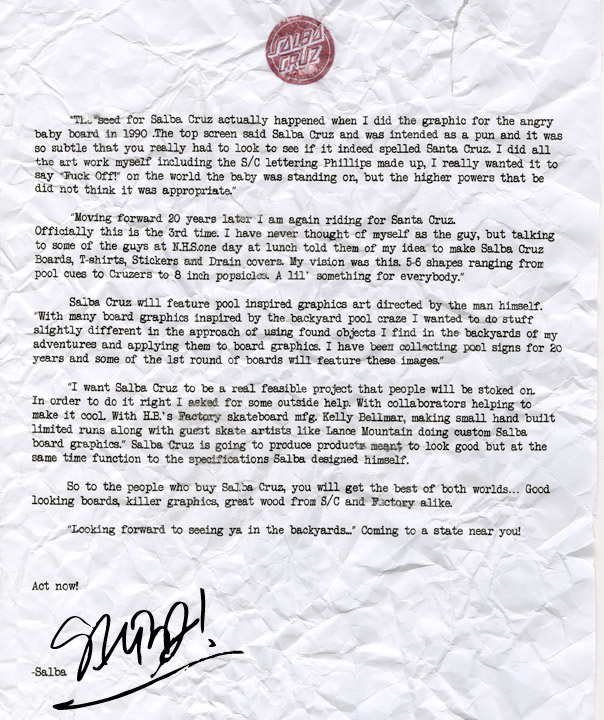 SALBA
CRUZ
"The "seed for Salba Cruz actually happened when I did the graphic for the angry
baby board in 1990 .The top screen said Salba Cruz and was intended as a pun and it was
so subtle that you really had to look to see if it indeed spelled Santa Cruz. I did all
the art work myself including the S/C lettering Phillips made up, I really wanted it to
say "Fuck Off!" on the world the baby was standing on, but the higher powers that be
did not think it was appropriate."
"Moving forward 20 years later I am again riding for Santa Cruz.
Officially this is the 3rd time. I have never thought of myself as the guy, but talking
to some of the guys at N.H.S.one day at lunch told them of my idea to make Salba Cruz
Boards, T-shirts, Stickers and Drain covers. My vision was this. 5-6 shapes ranging from
pool cues to Cruzers to 8 inch popsicles. A lil' something for everybody."
Salba Cruz will feature pool inspired graphics art directed by the man himself.
"With many board graphics inspired by the backyard pool craze I wanted to do stuff
slightly different in the approach of using found objects I find in the backyards of my
adventures and applying them to board graphics. I have been collecting pool signs for 20
years and some of the 1st round of boards will feature these images."
"I want Salba Cruz to be a real feasible project that people will be stoked on.
In order to do it right I asked for some outside help. With collaborators helping to
make it cool. With H.B.'s Factory skateboard mfg. Kelly Bellmar, making small hand built
limited runs along with guest skate artists like Lance Mountain doing custom Salba
board graphics." Salba Cruz is going to produce products meant to look good but at the
same time function to the specifications Salba designed himself.
So to the people who buy Salba Cruz, you will get the best of both worlds... Good
looking boards, killer graphics, great wood from S/C and Factory alike.
"Looking forward to seeing ya in the backyards..." Coming to a state near you!
Act now!
SALBA!
-Salba